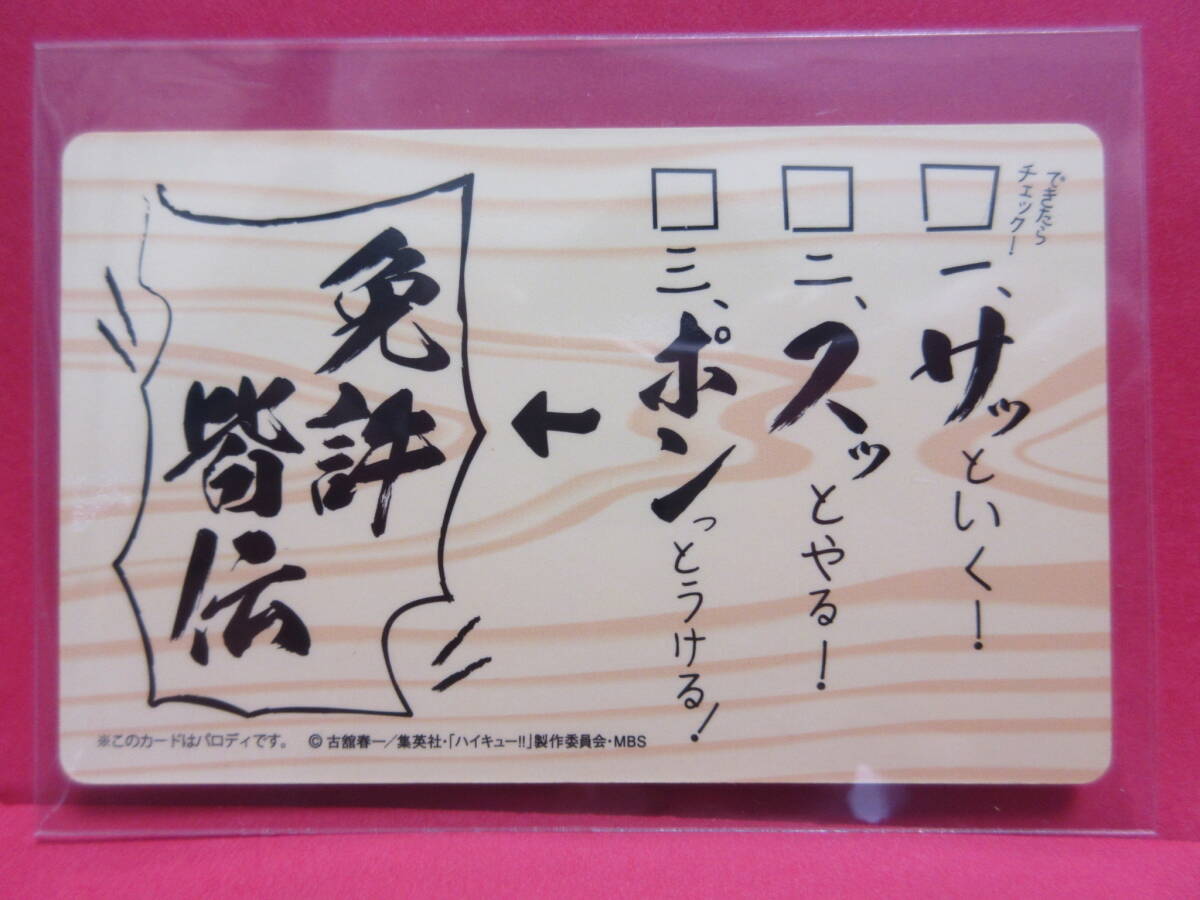 できたら
チェック！
一、サッといく！
二、スッとやる！
三、ポンっとうける！
免許
皆伝
※このカードはパロディです。 © 古舘春一／集英社・「ハイキュー!!」製作委員会・MBS